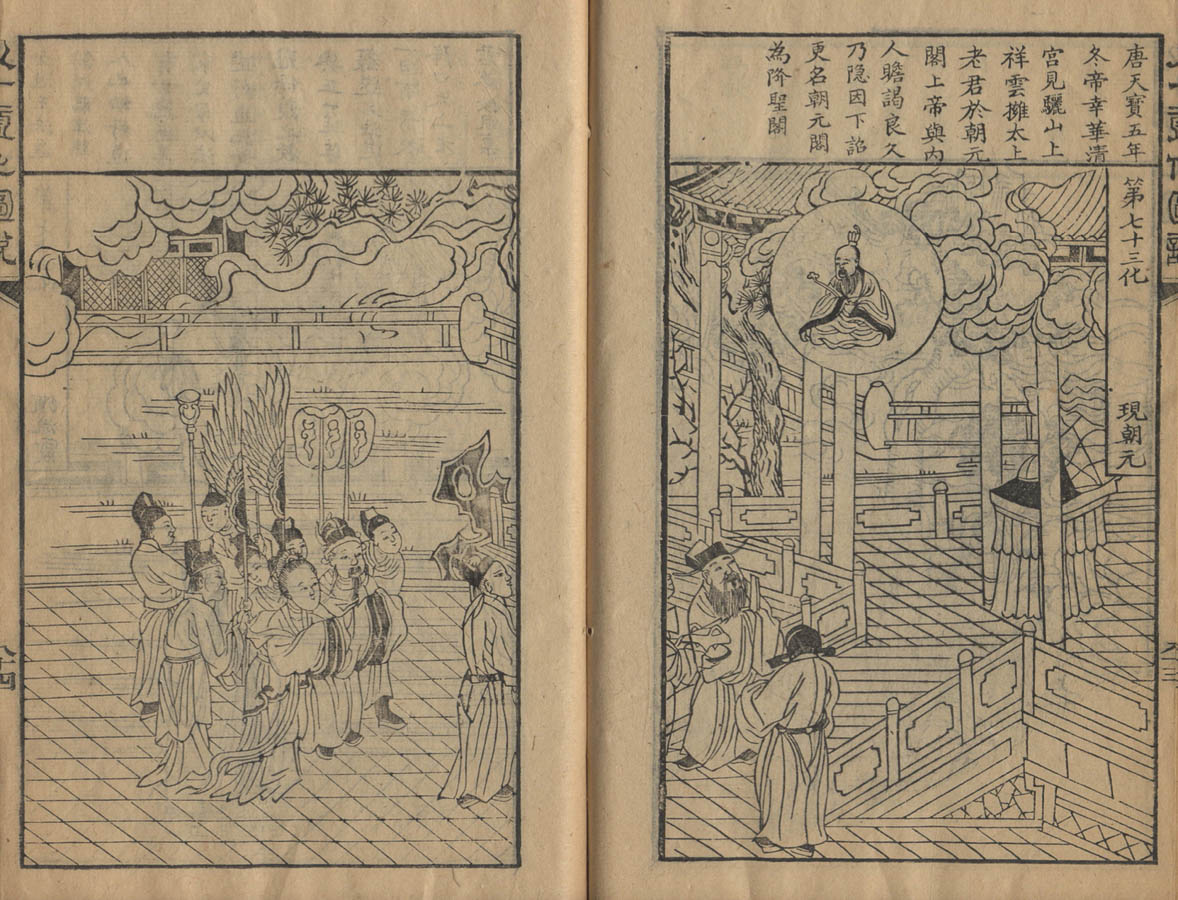 唐天寶五年
冬帝幸華清
宮見驪山上
祥雲擁太上
老君於朝元
閣上帝與內
人瞻謁良久
乃隐因下詔
更名朝元閣
為降聖閣
第七十三化
現朝元